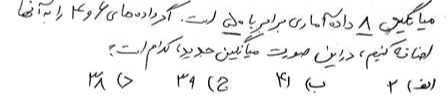 میانگین ۸ داده آماری برابر با ۵۰ است. اگر داده‌های ۶ و ۴ را به آنها
اضافه کنیم، در این صورت میانگین جدید، کدام است؟
الف) ۲ ب) ۴۱ ج) ۳۹ د) ۳۸